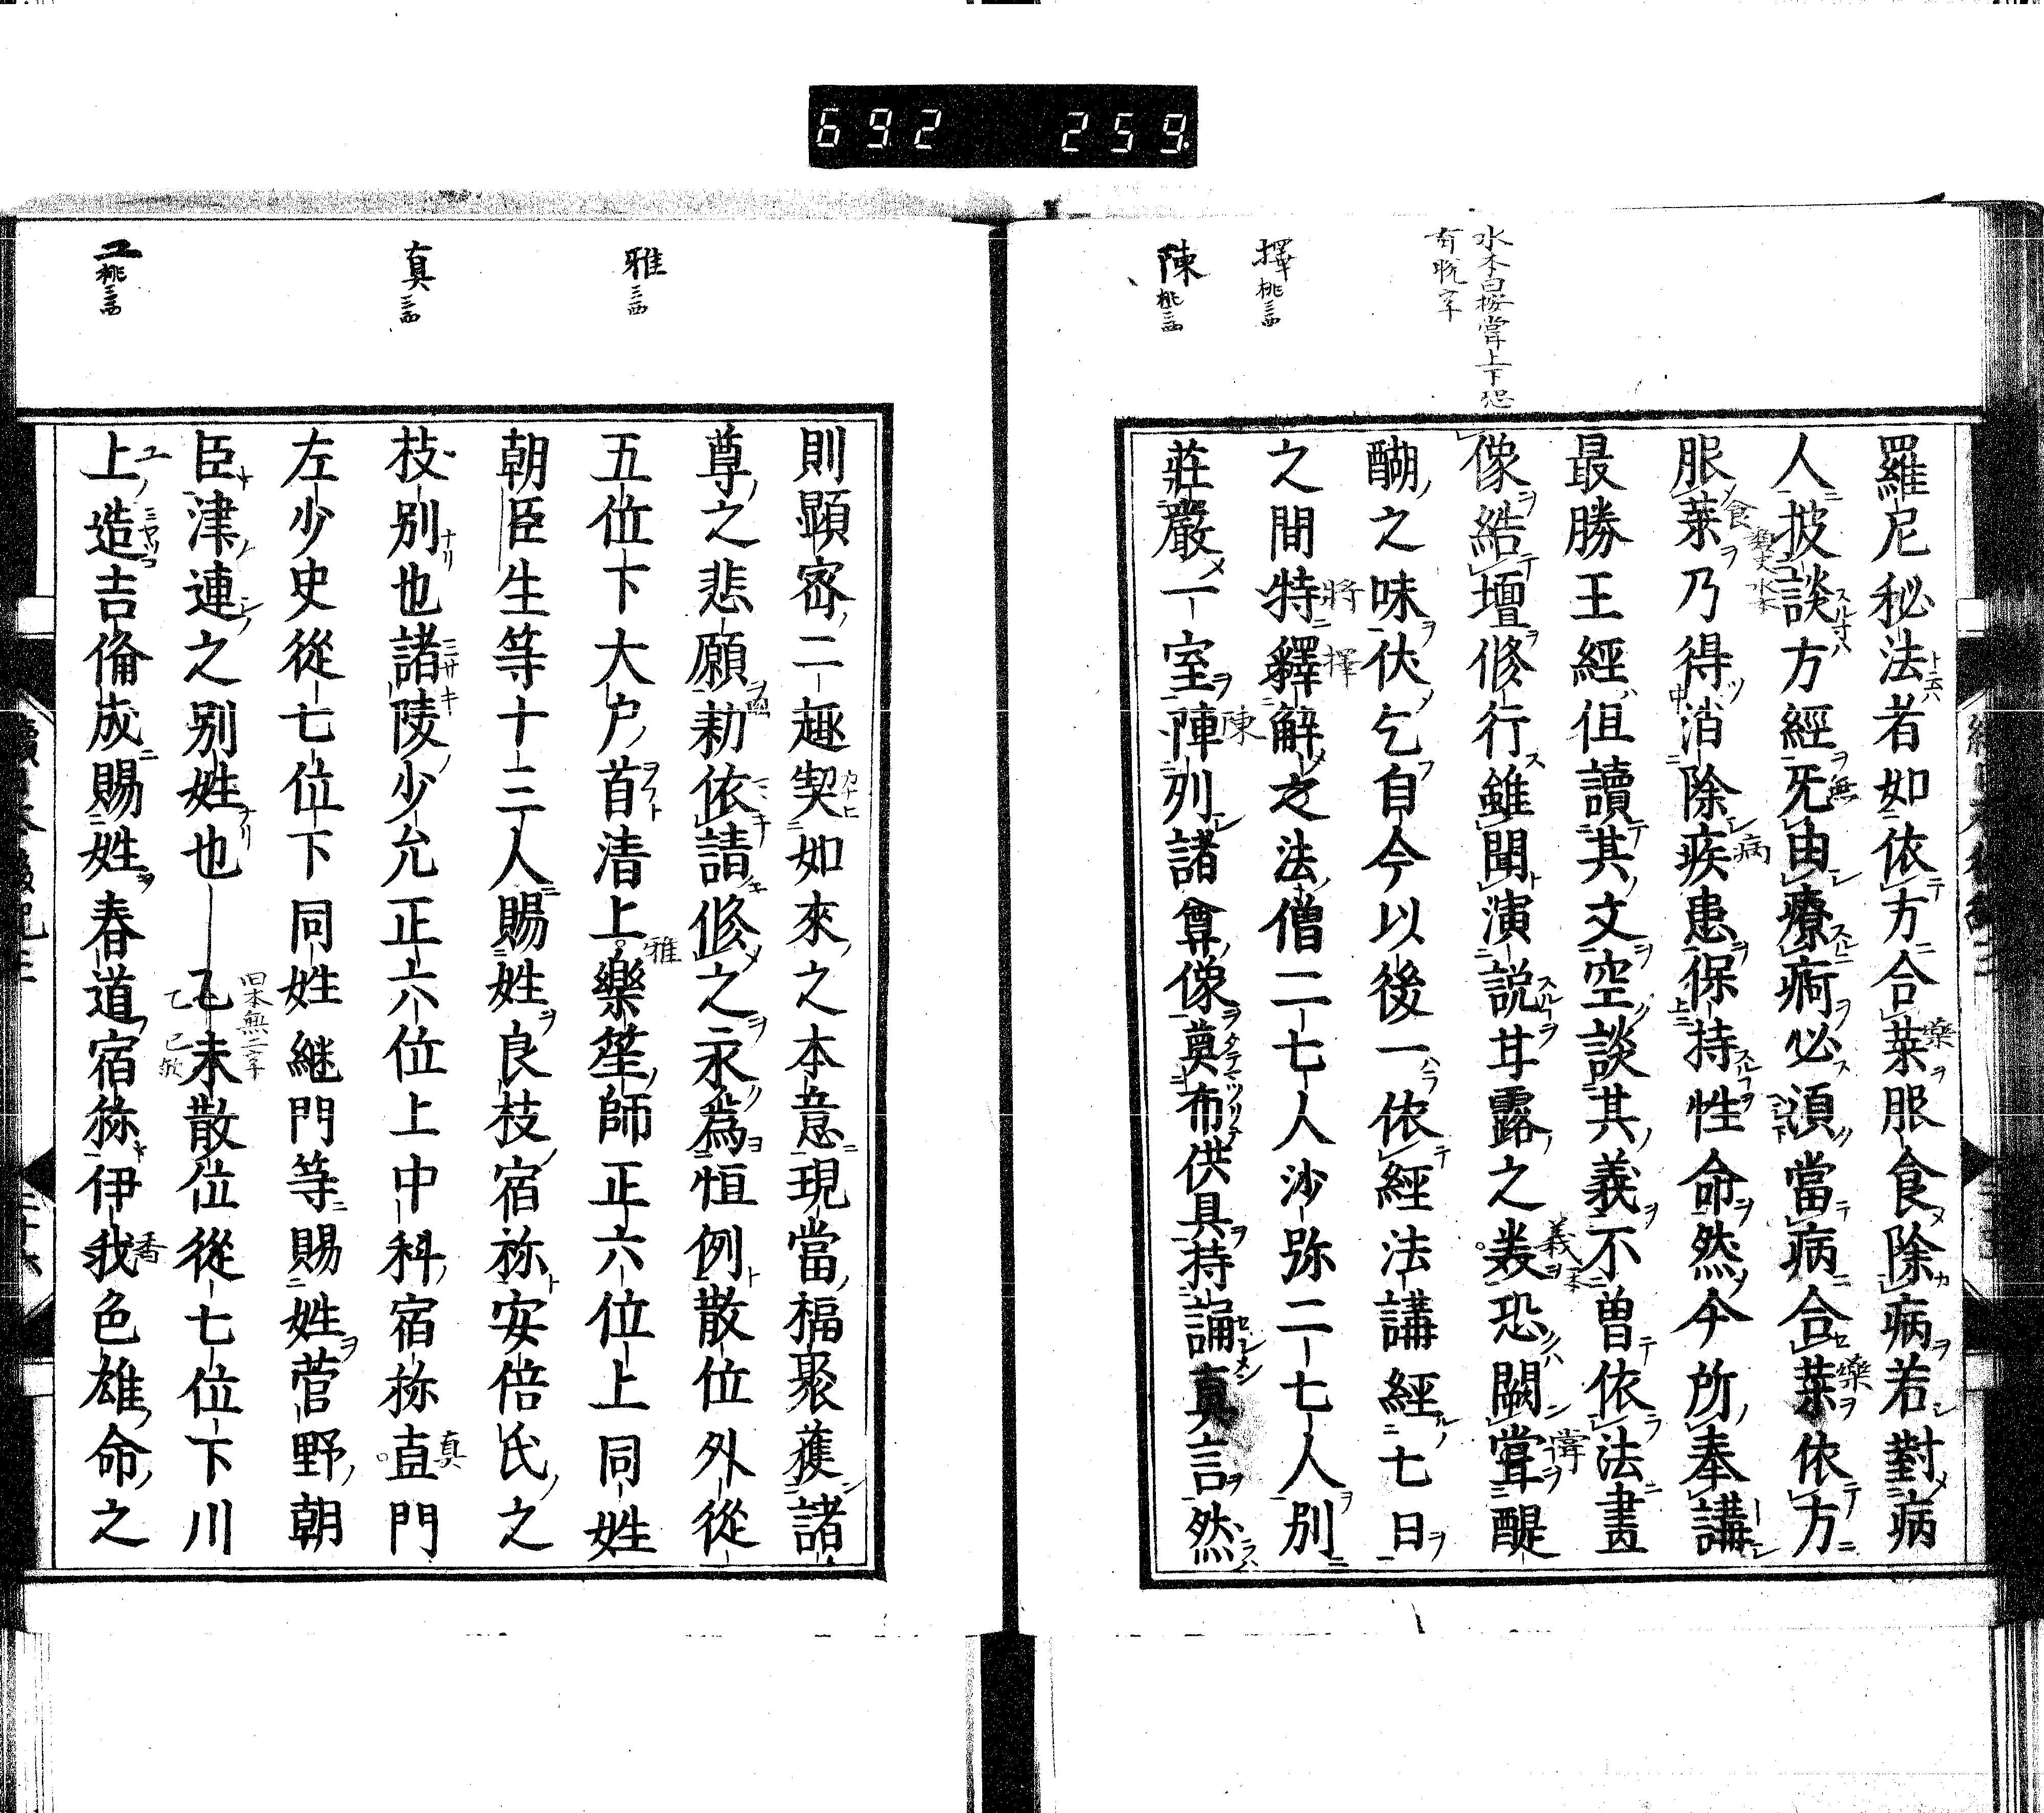 692 259
水本曰按甞上下恐
有脱字
擇 桃三西
陳 桃三西
羅尼秘法者如依方合藥服食除病若對病
人披談方經无由療病必須當病合藥依方
服藥乃得消除疾患保持性命然今所奉講
最勝王經但讀其文空談其義不曾依法畫
像結壇修行雖聞演説甘露之義恐闕甞醍
醐之味伏乞自今以後一依經法講經七日
之間特釋解之法僧二七人沙弥二七人別
莊嚴一室陣列諸尊像奠布供具持誦真言然
雅 三西
真 三西
工 桃三西
則顕密二趣契如來之本意現當福聚蒦諸
尊之悲願勑依請修之永爲恒例散位外從
五位下大戸首清上樂笙師正六位上同姓
朝臣生等十三人賜姓良枝宿祢安倍氏之
枝別也諸陵少允正六位上中科宿祢直門
左少史從七位下同姓継門等賜姓菅野朝
臣津連之別姓也乙未散位從七位下川
上造吉倫成賜姓春道宿祢伊我色雄命之